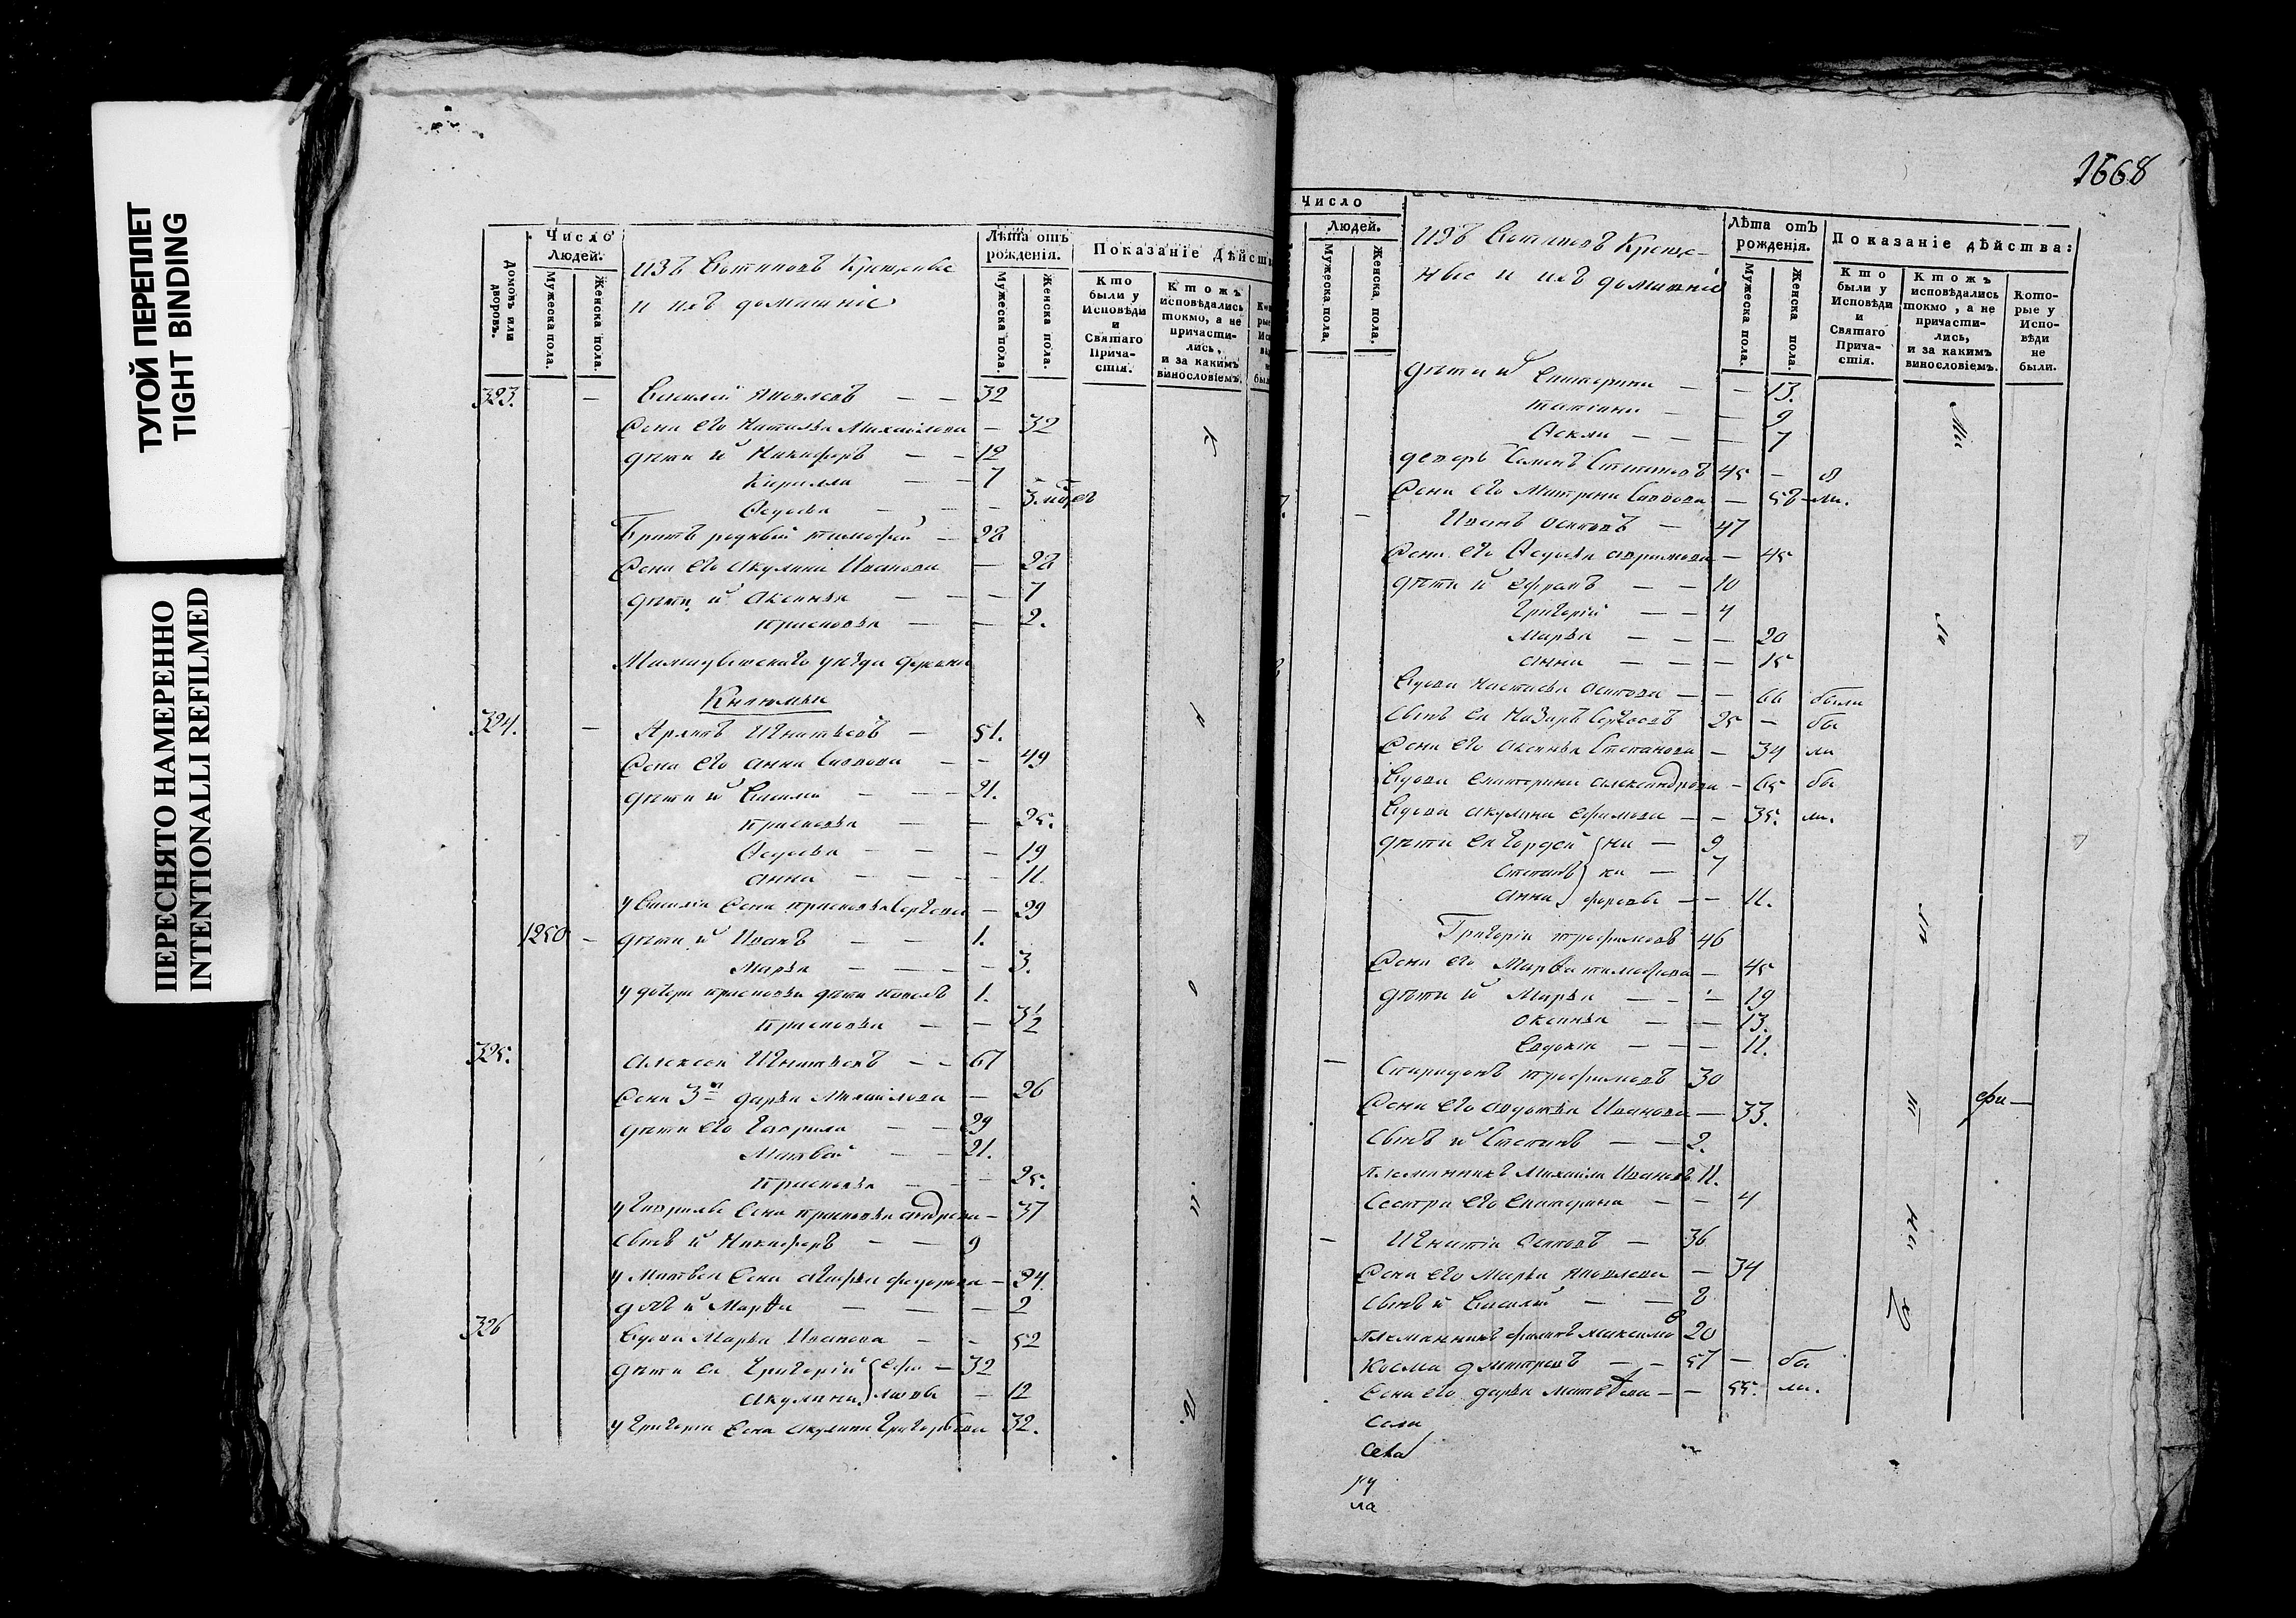 ТУГОЙ ПЕРЕПЛЕТ
TIGHT BINDING
ПЕРЕСНЯТО НАМЕРЕННО
INTENTIONALLI REFILMED
Домовъ или дворовъ.
Число Людей.
Мужеска пола.
Женска пола.
изъ Вотяковъ Крещеные
и ихъ домашніе
Лѣта отъ рожденія.
Мужеска пола.
Женска пола.
Показаніе Дѣйств
Кто были у Исповѣди и Святаго Причастія.
Ктожъ исповѣдались токмо, а не причастились, и за какимъ винословіемъ.
323. — Василей Яковлевъ — — 32
Жена его Наталья Михайлова — 32
дѣти и Никифоръ — — 12
Кирилла — — 7
Федосья — — 3. мцъ
Братъ родный тимофей — 28
Жена его Акулина Иванова — 28
дѣти и Аксинья — — — 7
прасковья — — 2.
Малмыжскаго уѣзда
324. — Архипъ Игнатьевъ — 51.
Жена его Анна Саввова — — 49
дѣти и Василий — — — 21.
прасковья — — 25.
Федосья — — — 19
Анна — — — — 11.
у Василія Жена прасковья Сергѣева — 29
1250 — дѣти и Иванъ — — 1.
Марья — — — — 3.
у дочери прасковьи дѣти павелъ 1.
прасковья — — 3 1/2
325. Алексей Игнатьевъ — — 67
Жена 3я дарья Михайлова — 26
дѣти его Гаврила — — 29
Матвей — — 21.
прасковья — — — 25.
у Гаврилы Жена прасковья Андреева — 37
сынъ и Никифоръ — — 9
у Матвея Жена Агафья федорова — 24.
дочь и Марѳа — — — 2
326 Вдова Марья Иванова — — 52
дѣти ея Григорій } Ефи — 32
Акулина } мовы — 12
у Григорья Жена Акулина Григорьева 32.
1668
Число Людей.
Мужеска пола.
Женска пола.
изъ Вотяковъ Креще-
ные и ихъ домашніе
Лѣта отъ рожденія.
Мужеска пола.
Женска пола.
Показаніе дѣйства:
Кто были у Исповѣди и Святаго Причастія.
Ктожъ исповѣдались токмо, а не причастились, и за какимъ винословіемъ.
Которые у Исповѣди не были.
дѣти и Екатерина — — 13.
татіана — — 9
Фекла — — — 7
Семенъ Степановъ 45 —
Жена его Матрена Саввова — 58 ли.
Иванъ Осиповъ — 47
Жена его Федосья Аврамова — 45
дѣти и Ефремъ — — 10
Григорій — — 4
Марья — — — 20
Анна — — — 15
Вдова Настасья Осипова — — 66 были
сынъ ея Назаръ Сергеевъ 25 — бы
Жена его Аксинья Степанова — 34 ли
Вдова Екатерина Александрова — 65 бы
Вдова Акулина Ефимова — — 35. ли.
дѣти ея Гордей } ни — 9
Степанъ } ки — 7
Анна } форовы — — 11.
Григорій трофимовъ 46
Жена его Марѳа тимофеева — 45
дѣти и Марья — — — 19
Оксинья — — 13.
Евдокія — — — 11.
— Спиридонъ трофимовъ 30
Жена его Авдотья Иванова — 33.
сынъ и Степанъ — — 2.
племянникъ Михайла Ивановъ 11.
Сестра его Екатерина — — 4
— Игнатій Осиповъ — 36
Жена его Марья Яковлева — 34
сынъ и Василий — — 8
племянникъ филипъ Максимовъ 20
Косма дмитреевъ — — 57 — бы
Жена его дарья Матвѣева — — 55. ли.
Села